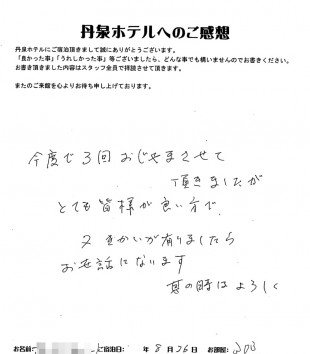 丹泉ホテルへのご感想
丹泉ホテルにご宿泊頂きまして誠にありがとうございます。
「良かった事」「うれしかった事」等ございましたら、どんな事でも構いませんのでお書きください。
お書き頂きました内容はスタッフ全員で拝読させて頂きます。
またのご来館を心よりお待ち申し上げております。
今度で3回おじゃまさせて
頂きましたが
とても皆様が良い方で
又きかいが有りましたら
お世話になります
其の時はよろしく
お名前: 宿泊日: 年 8月26日 お部屋: